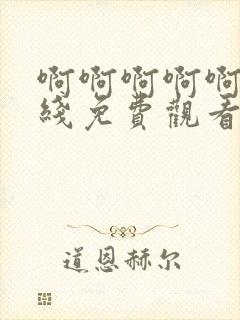 啊啊啊啊啊
綫免費觀看
道恩赫尔